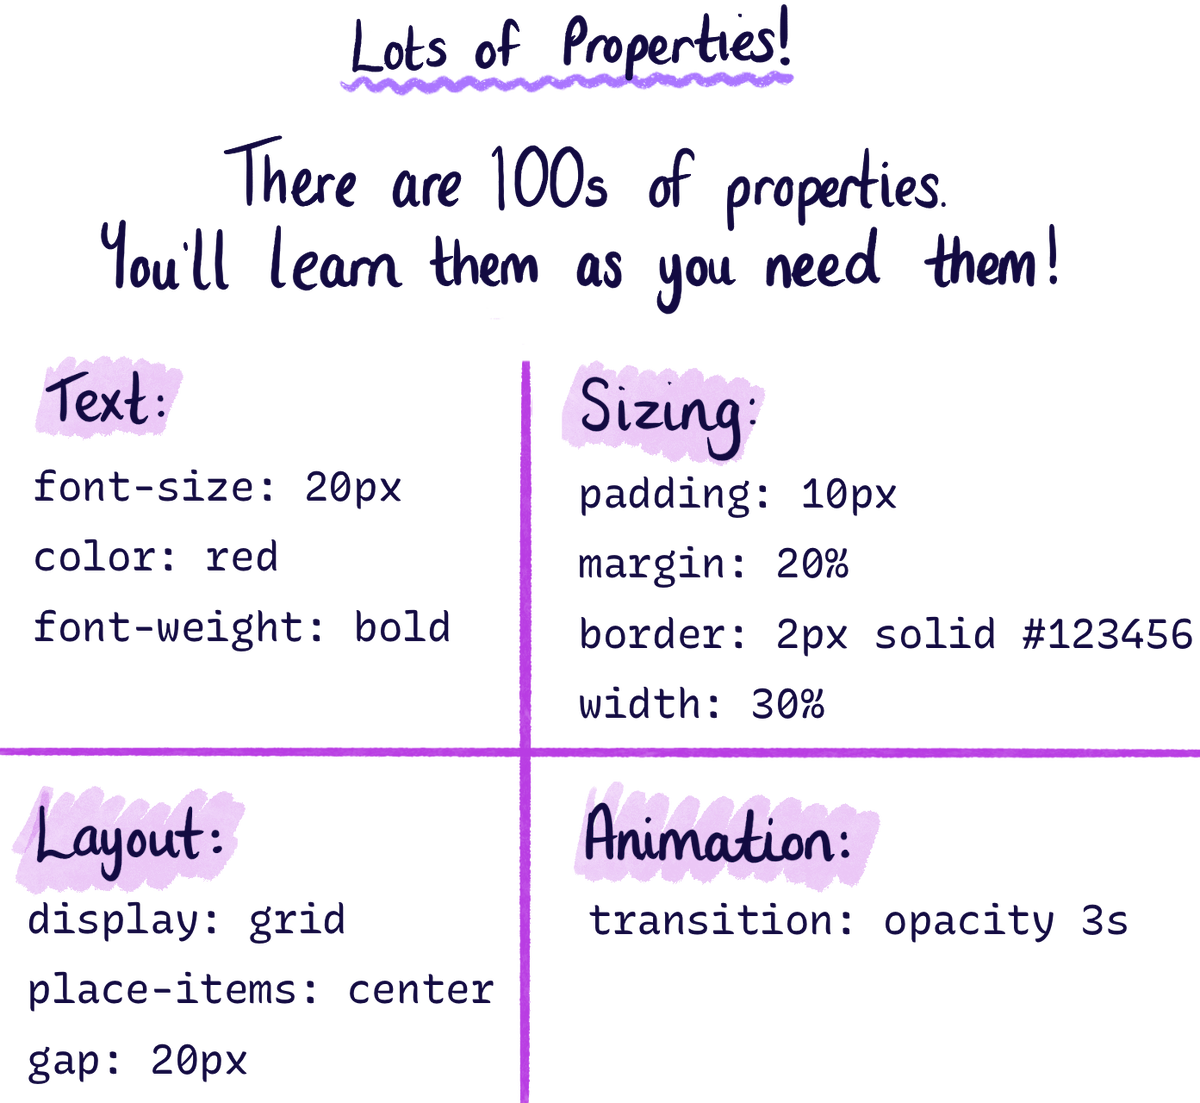 Lots of Properties!
There are 100s of properties.
You'll learn them as you need them!
Text:
font-size: 20px
color: red
font-weight: bold
Sizing:
padding: 10px
margin: 20%
border: 2px solid #123456
width: 30%
Layout:
display: grid
place-items: center
gap: 20px
Animation:
transition: opacity 3s